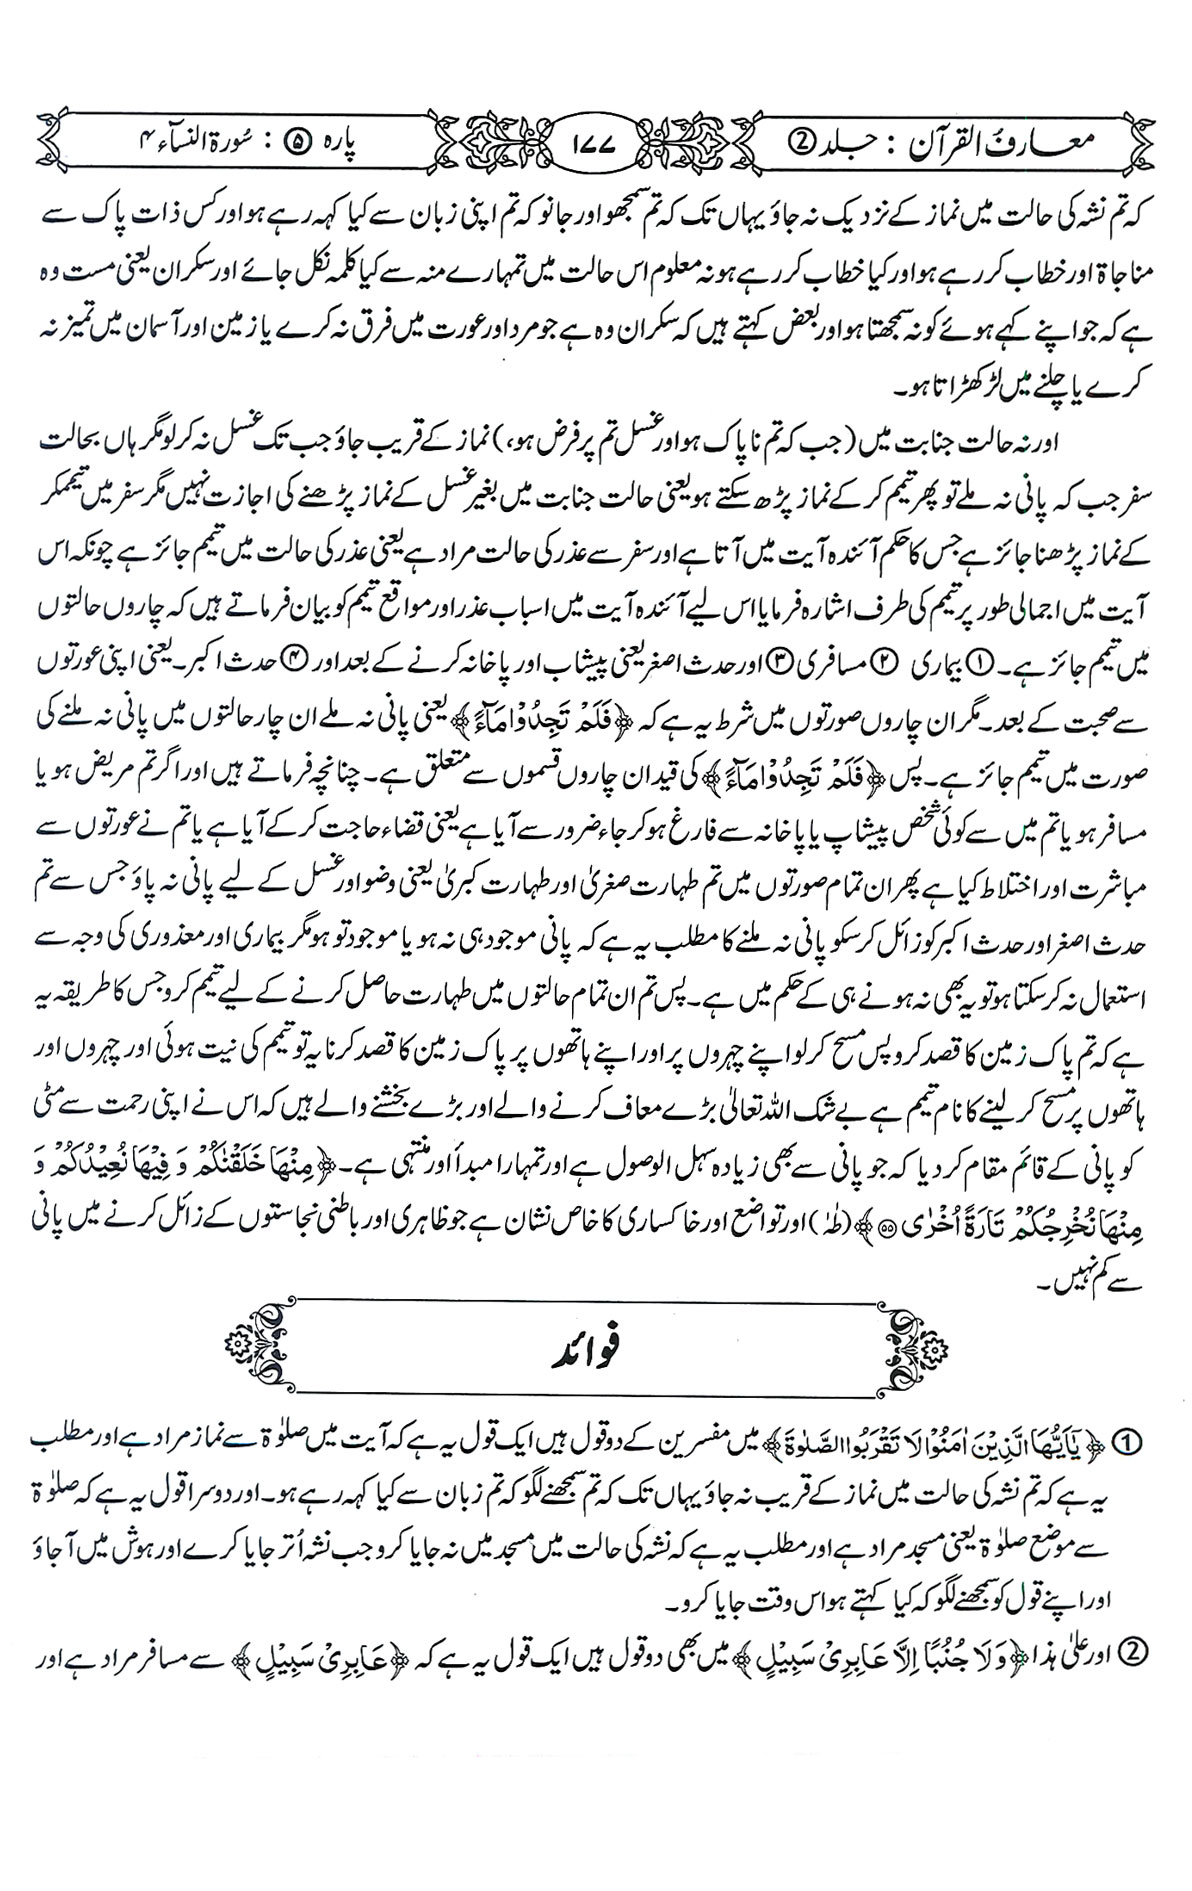 معارف القرآن : جلد ②
۱۷۷
پارہ ⑤ : سُورۃ النسآء ۴
کہ تم نشہ کی حالت میں نماز کے نزدیک نہ جاؤ یہاں تک کہ تم سمجھو اور جانو کہ تم اپنی زبان سے کیا کہہ رہے ہو اور کس ذات پاک سے
مناجاۃ اور خطاب کر رہے ہو اور کیا خطاب کر رہے ہو نہ معلوم اس حالت میں تمہارے منہ سے کیا کلمہ نکل جائے اور سکران یعنی مست وہ
ہے کہ جو اپنے کہے ہوئے کو نہ سمجھتا ہو اور بعض کہتے ہیں کہ سکران وہ ہے جو مرد اور عورت میں فرق نہ کرے یا زمین اور آسمان میں تمیز نہ
کرے یا چلنے میں لڑکھڑاتا ہو۔
اور نہ حالت جنابت میں (جب کہ تم ناپاک ہو اور غسل تم پر فرض ہو،) نماز کے قریب جاؤ جب تک غسل نہ کر لو مگر ہاں بحالت
سفر جب کہ پانی نہ ملے تو پھر تیمم کر کے نماز پڑھ سکتے ہو یعنی حالت جنابت میں بغیر غسل کے نماز پڑھنے کی اجازت نہیں مگر سفر میں تیمم کر
کے نماز پڑھنا جائز ہے جس کا حکم آئندہ آیت میں آتا ہے اور سفر سے عذر کی حالت مراد ہے یعنی عذر کی حالت میں تیمم جائز ہے چونکہ اس
آیت میں اجمالی طور پر تیمم کی طرف اشارہ فرمایا اس لیے آئندہ آیت میں اسباب عذر اور مواقع تیمم کو بیان فرماتے ہیں کہ چاروں حالتوں
میں تیمم جائز ہے۔ ① بیماری ② مسافری ③ اور حدث اصغر یعنی پیشاب اور پاخانہ کرنے کے بعد اور ④ حدث اکبر۔ یعنی اپنی عورتوں
سے صحبت کے بعد۔ مگر ان چاروں صورتوں میں شرط یہ ہے کہ ﴿فَلَمْ تَجِدُوْا مَآءً﴾ یعنی پانی نہ ملے ان چار حالتوں میں پانی نہ ملنے کی
صورت میں تیمم جائز ہے۔ پس ﴿فَلَمْ تَجِدُوْا مَآءً﴾ کی قید ان چاروں قسموں سے متعلق ہے۔ چنانچہ فرماتے ہیں اور اگر تم مریض ہو یا
مسافر ہو یا تم میں سے کوئی شخص پیشاب یا پاخانہ سے فارغ ہو کر جاء ضرور سے آیا ہے یعنی قضاء حاجت کر کے آیا ہے یا تم نے عورتوں سے
مباشرت اور اختلاط کیا ہے پھر ان تمام صورتوں میں تم طہارت صغریٰ اور طہارت کبریٰ یعنی وضو اور غسل کے لیے پانی نہ پاؤ جس سے تم
حدث اصغر اور حدث اکبر کو زائل کر سکو پانی نہ ملنے کا مطلب یہ ہے کہ پانی موجود ہی نہ ہو یا موجود تو ہو مگر بیماری اور معذوری کی وجہ سے
استعمال نہ کر سکتا ہو تو یہ بھی نہ ہونے ہی کے حکم میں ہے۔ پس تم ان تمام حالتوں میں طہارت حاصل کرنے کے لیے تیمم کرو جس کا طریقہ یہ
ہے کہ تم پاک زمین کا قصد کرو پس مسح کر لو اپنے چہروں پر اور اپنے ہاتھوں پر پاک زمین کا قصد کرنا یہ تو تیمم کی نیت ہوئی اور چہروں اور
ہاتھوں پر مسح کر لینے کا نام تیمم ہے بے شک اللہ تعالیٰ بڑے معاف کرنے والے اور بڑے بخشنے والے ہیں کہ اس نے اپنی رحمت سے مٹی
کو پانی کے قائم مقام کر دیا کہ جو پانی سے بھی زیادہ سہل الوصول ہے اور تمہارا مبدأ اور منتہی ہے۔ ﴿مِنْهَا خَلَقْنٰكُمْ وَ فِيْهَا نُعِيْدُكُمْ وَ
مِنْهَا نُخْرِجُكُمْ تَارَةً اُخْرٰى ۵۵﴾ (طہٰ) اور تواضع اور خاکساری کا خاص نشان ہے جو ظاہری اور باطنی نجاستوں کے زائل کرنے میں پانی
سے کم نہیں۔
فوائد
① ﴿يٰۤاَيُّهَا الَّذِيْنَ اٰمَنُوْا لَا تَقْرَبُوا الصَّلٰوةَ﴾ میں مفسرین کے دو قول ہیں ایک قول یہ ہے کہ آیت میں صلوٰۃ سے نماز مراد ہے اور مطلب
یہ ہے کہ تم نشہ کی حالت میں نماز کے قریب نہ جاؤ یہاں تک کہ تم سمجھنے لگو کہ تم زبان سے کیا کہہ رہے ہو۔ اور دوسرا قول یہ ہے کہ صلوٰۃ
سے موضع صلوٰۃ یعنی مسجد مراد ہے اور مطلب یہ ہے کہ نشہ کی حالت میں مسجد میں نہ جایا کرو جب نشہ اُتر جایا کرے اور ہوش میں آ جاؤ
اور اپنے قول کو سمجھنے لگو کہ کیا کہتے ہو اس وقت جایا کرو۔
② اور علیٰ ہذا ﴿وَلَا جُنُبًا اِلَّا عَابِرِيْ سَبِيْلٍ﴾ میں بھی دو قول ہیں ایک قول یہ ہے کہ ﴿عَابِرِيْ سَبِيْلٍ﴾ سے مسافر مراد ہے اور